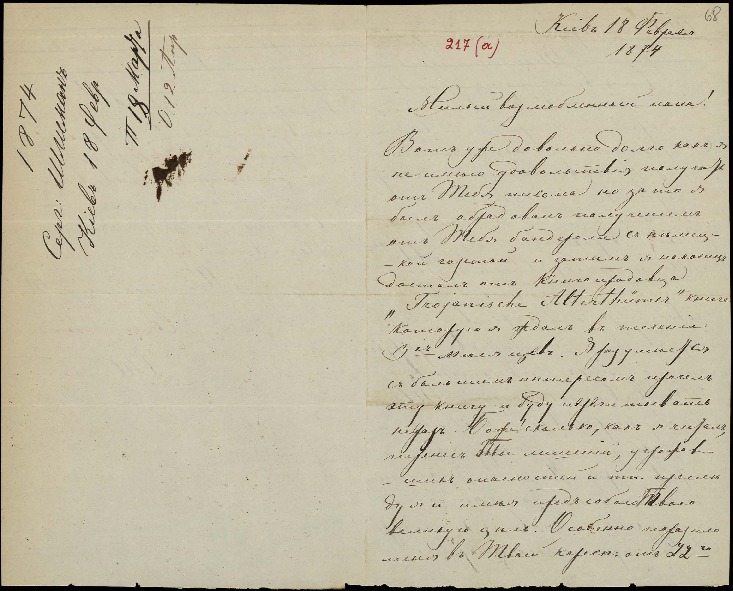 1874
Серг: Шлиманъ
Кіевъ 18 Февр
П 18 Марта
О. 12 Апр
68
217 (a)
Кіевъ 18 Февраля
1874
Милый возлюбленный папа!
Вотъ уже довольно долго какъ я
не имѣю удовольствія получать
отъ Тебя письма но за то я
былъ обрадованъ полученіемъ
отъ Тебя бандероли съ нѣмец-
-кой и затѣмъ я наконецъ
досталъ отъ книгопродавца
„Trojanische Alterthümer" книгу
которую я ждалъ въ теченіи
3хъ мѣсяцевъ. Я разумѣется
съ большимъ интересомъ прочелъ
эту книгу и буду
Боже сколько, какъ я читалъ,
перенесъ Ты лишеній,
опасностей и
имѣя предъ собою Твою
великую цѣль. Особенно поразило
меня въ Твоей 22го